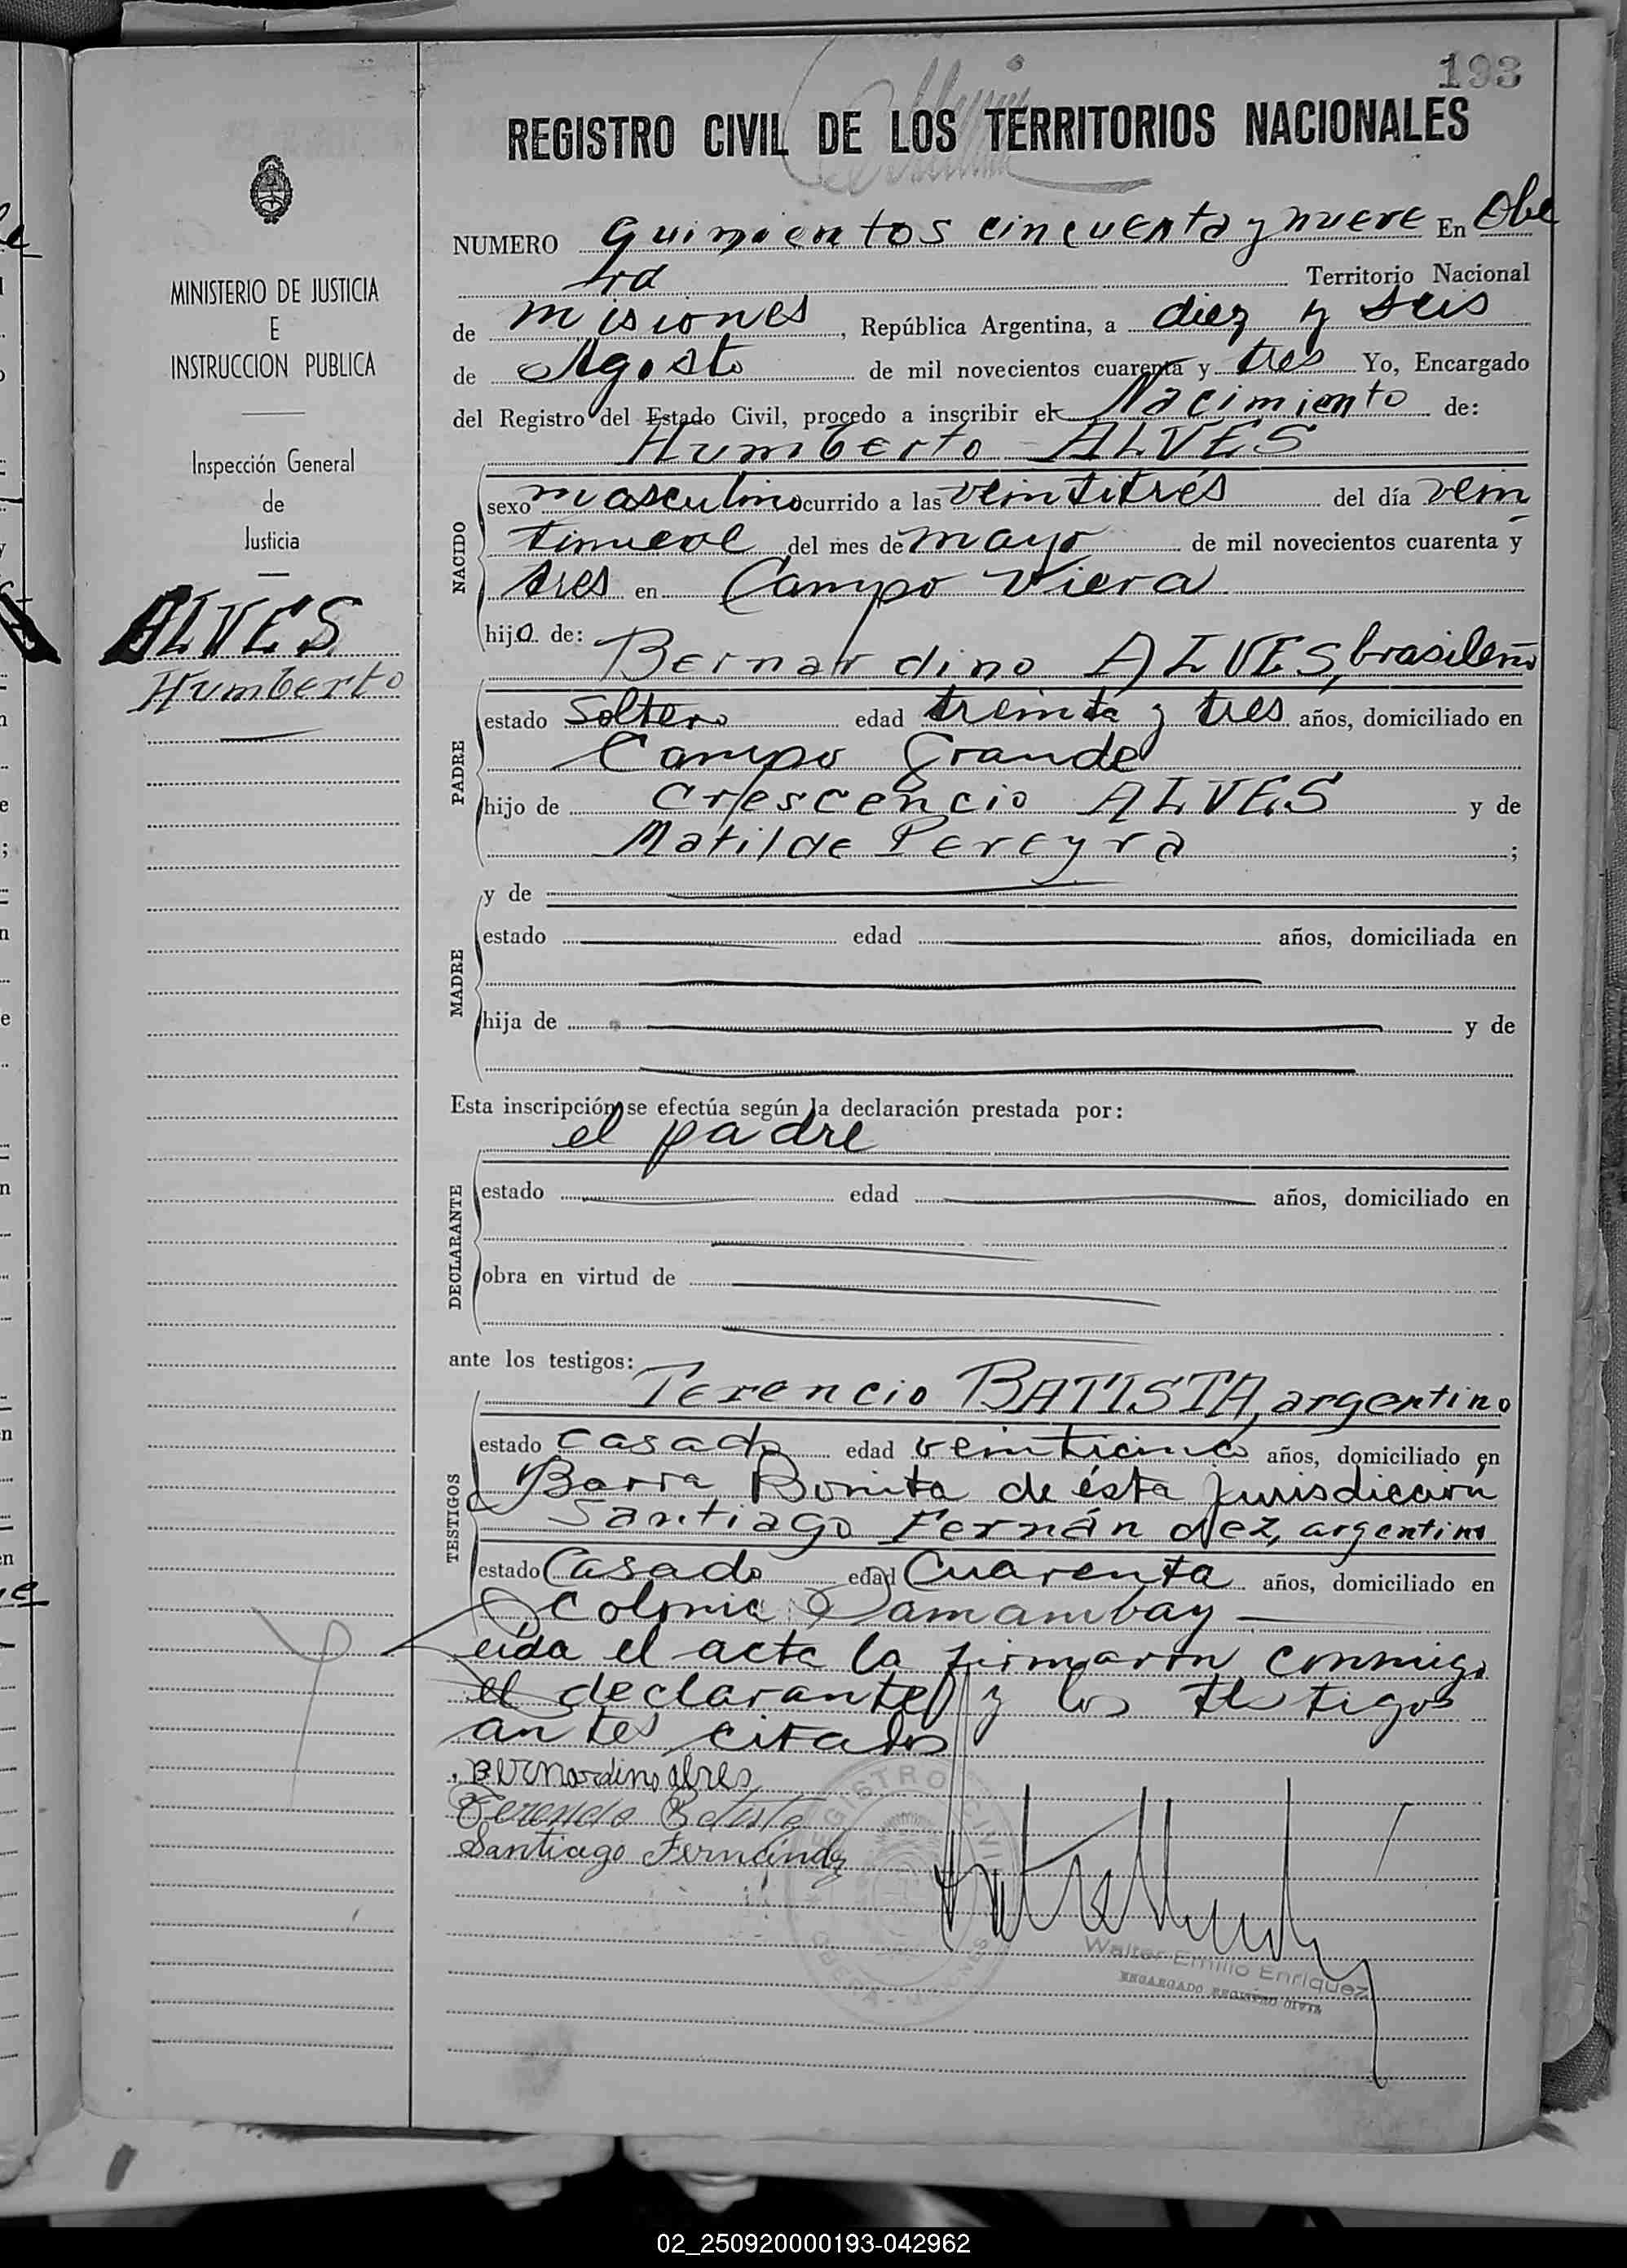 193
REGISTRO CIVIL DE LOS TERRITORIOS NACIONALES
MINISTERIO DE JUSTICIA
E
INSTRUCCION PUBLICA
Inspección General
de
Justicia
ALVES
Humberto
NUMERO Quinientos cincuenta y nueve En Obe
ra Territorio Nacional
de misiones, República Argentina, a diez y seis
de Agosto de mil novecientos cuarenta y tres Yo, Encargado
del Registro del Estado Civil, procedo a inscribir el Nacimiento de:
Humberto ALVES
NACIDO
sexo masculino ocurrido a las veintitrés del día vein
tinueve del mes de mayo de mil novecientos cuarenta y
tres en Campo Viera
hijo de:
Bernardino ALVES, brasileño
PADRE
estado Soltero edad treinta y tres años, domiciliado en
Campo Grande
hijo de Crescencio ALVES y de
Matilde Pereyra ;
MADRE
y de
estado edad años, domiciliada en
hija de y de
Esta inscripción se efectúa según la declaración prestada por:
el padre
DECLARANTE
estado edad años, domiciliado en
obra en virtud de
ante los testigos:
Terencio BATISTA, argentino
TESTIGOS
estado casado edad veinticinco años, domiciliado en
Barra Bonita de ésta jurisdicción
Santiago Fernández, argentino
estado Casado edad Cuarenta años, domiciliado en
Colonia Samambay
Leída el acta la firmaron conmigo
el declarante y los testigos
antes citados
Bernardino alves
Terencio Batista
Santiago Fernández
REGISTRO CIVIL
OBERA - MISIONES
Walter Emilio Enriquez
ENCARGADO REGISTRO CIVIL
02_250920000193-042962